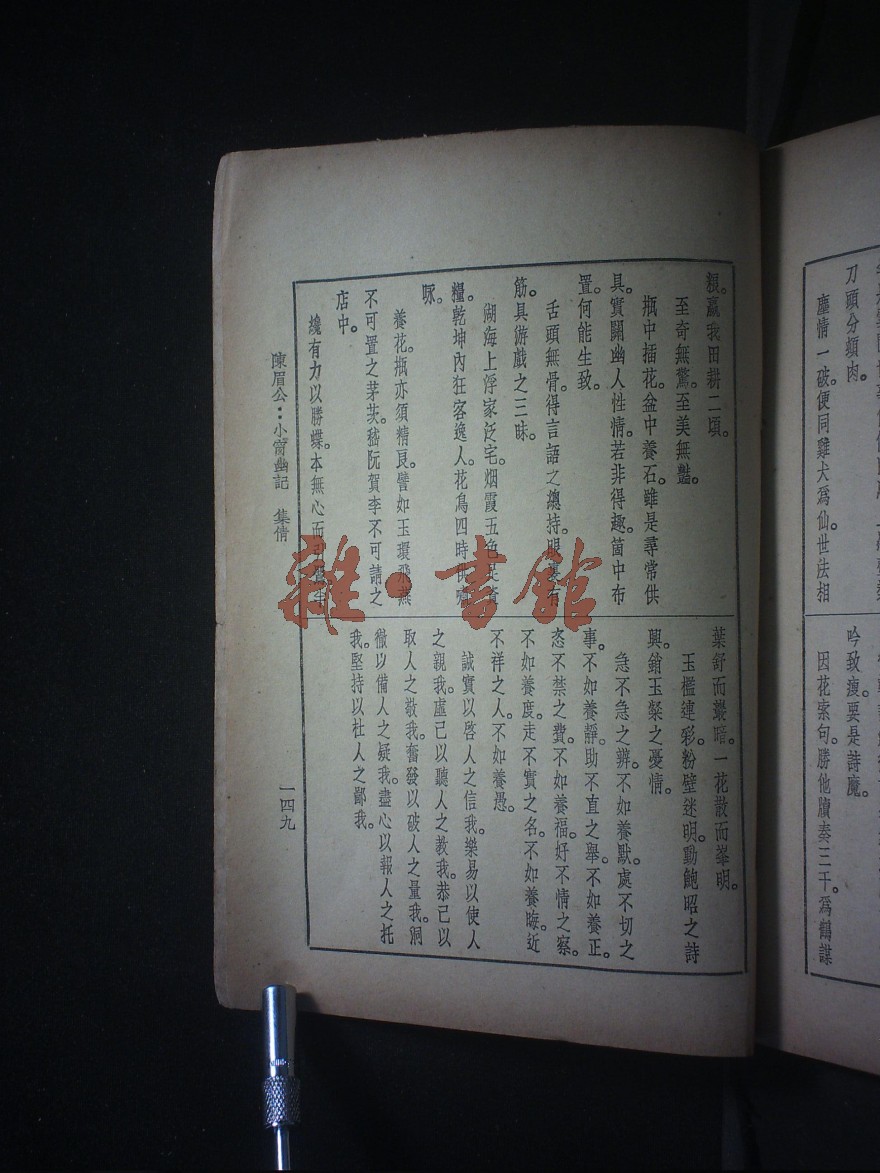 刀頭分頰肉。
塵情一破。便同雞犬爲仙。世法相
吟致瘦。要是詩魔。
因花索句。勝他牘奏三千。爲鶴謀
糧。贏我田耕二頃。
至奇無驚。至美無豔。
瓶中插花。盆中養石。雖是尋常供
具。實關幽人性情。若非得趣。箇中布
置。何能生致。
舌頭無骨。得言語之總持。明裏有
筋。具游戲之三昧。
湖海上浮家泛宅。烟霞五色是
糧。乾坤內狂客逸人。花鳥四時
啄。
養花。瓶亦須精良。譬如玉環飛燕
不可置之茅茨。嵇阮賀李不可請之
店中。
纔有力以勝蝶。本無心而引
葉舒而巖暗。一花散而峯明。
玉檻連彩。粉壁迷明。動鮑昭之詩
興。銷王粲之憂情。
急不急之辨。不如養默。處不切之
事。不如養靜。助不直之舉。不如養正。
恣不禁之費。不如養福。好不情之察。
不如養度。走不實之名。不如養晦。近
不祥之人。不如養愚。
誠實以啓人之信我。樂易以使人
之親我。虛己以聽人之教我。恭己以
取人之敬我。奮發以破人之量我。洞
徹以備人之疑我。盡心以報人之托
我。堅持以杜人之鄙我。
陳眉公：小窗幽記 集倩
一四九
雜·書館